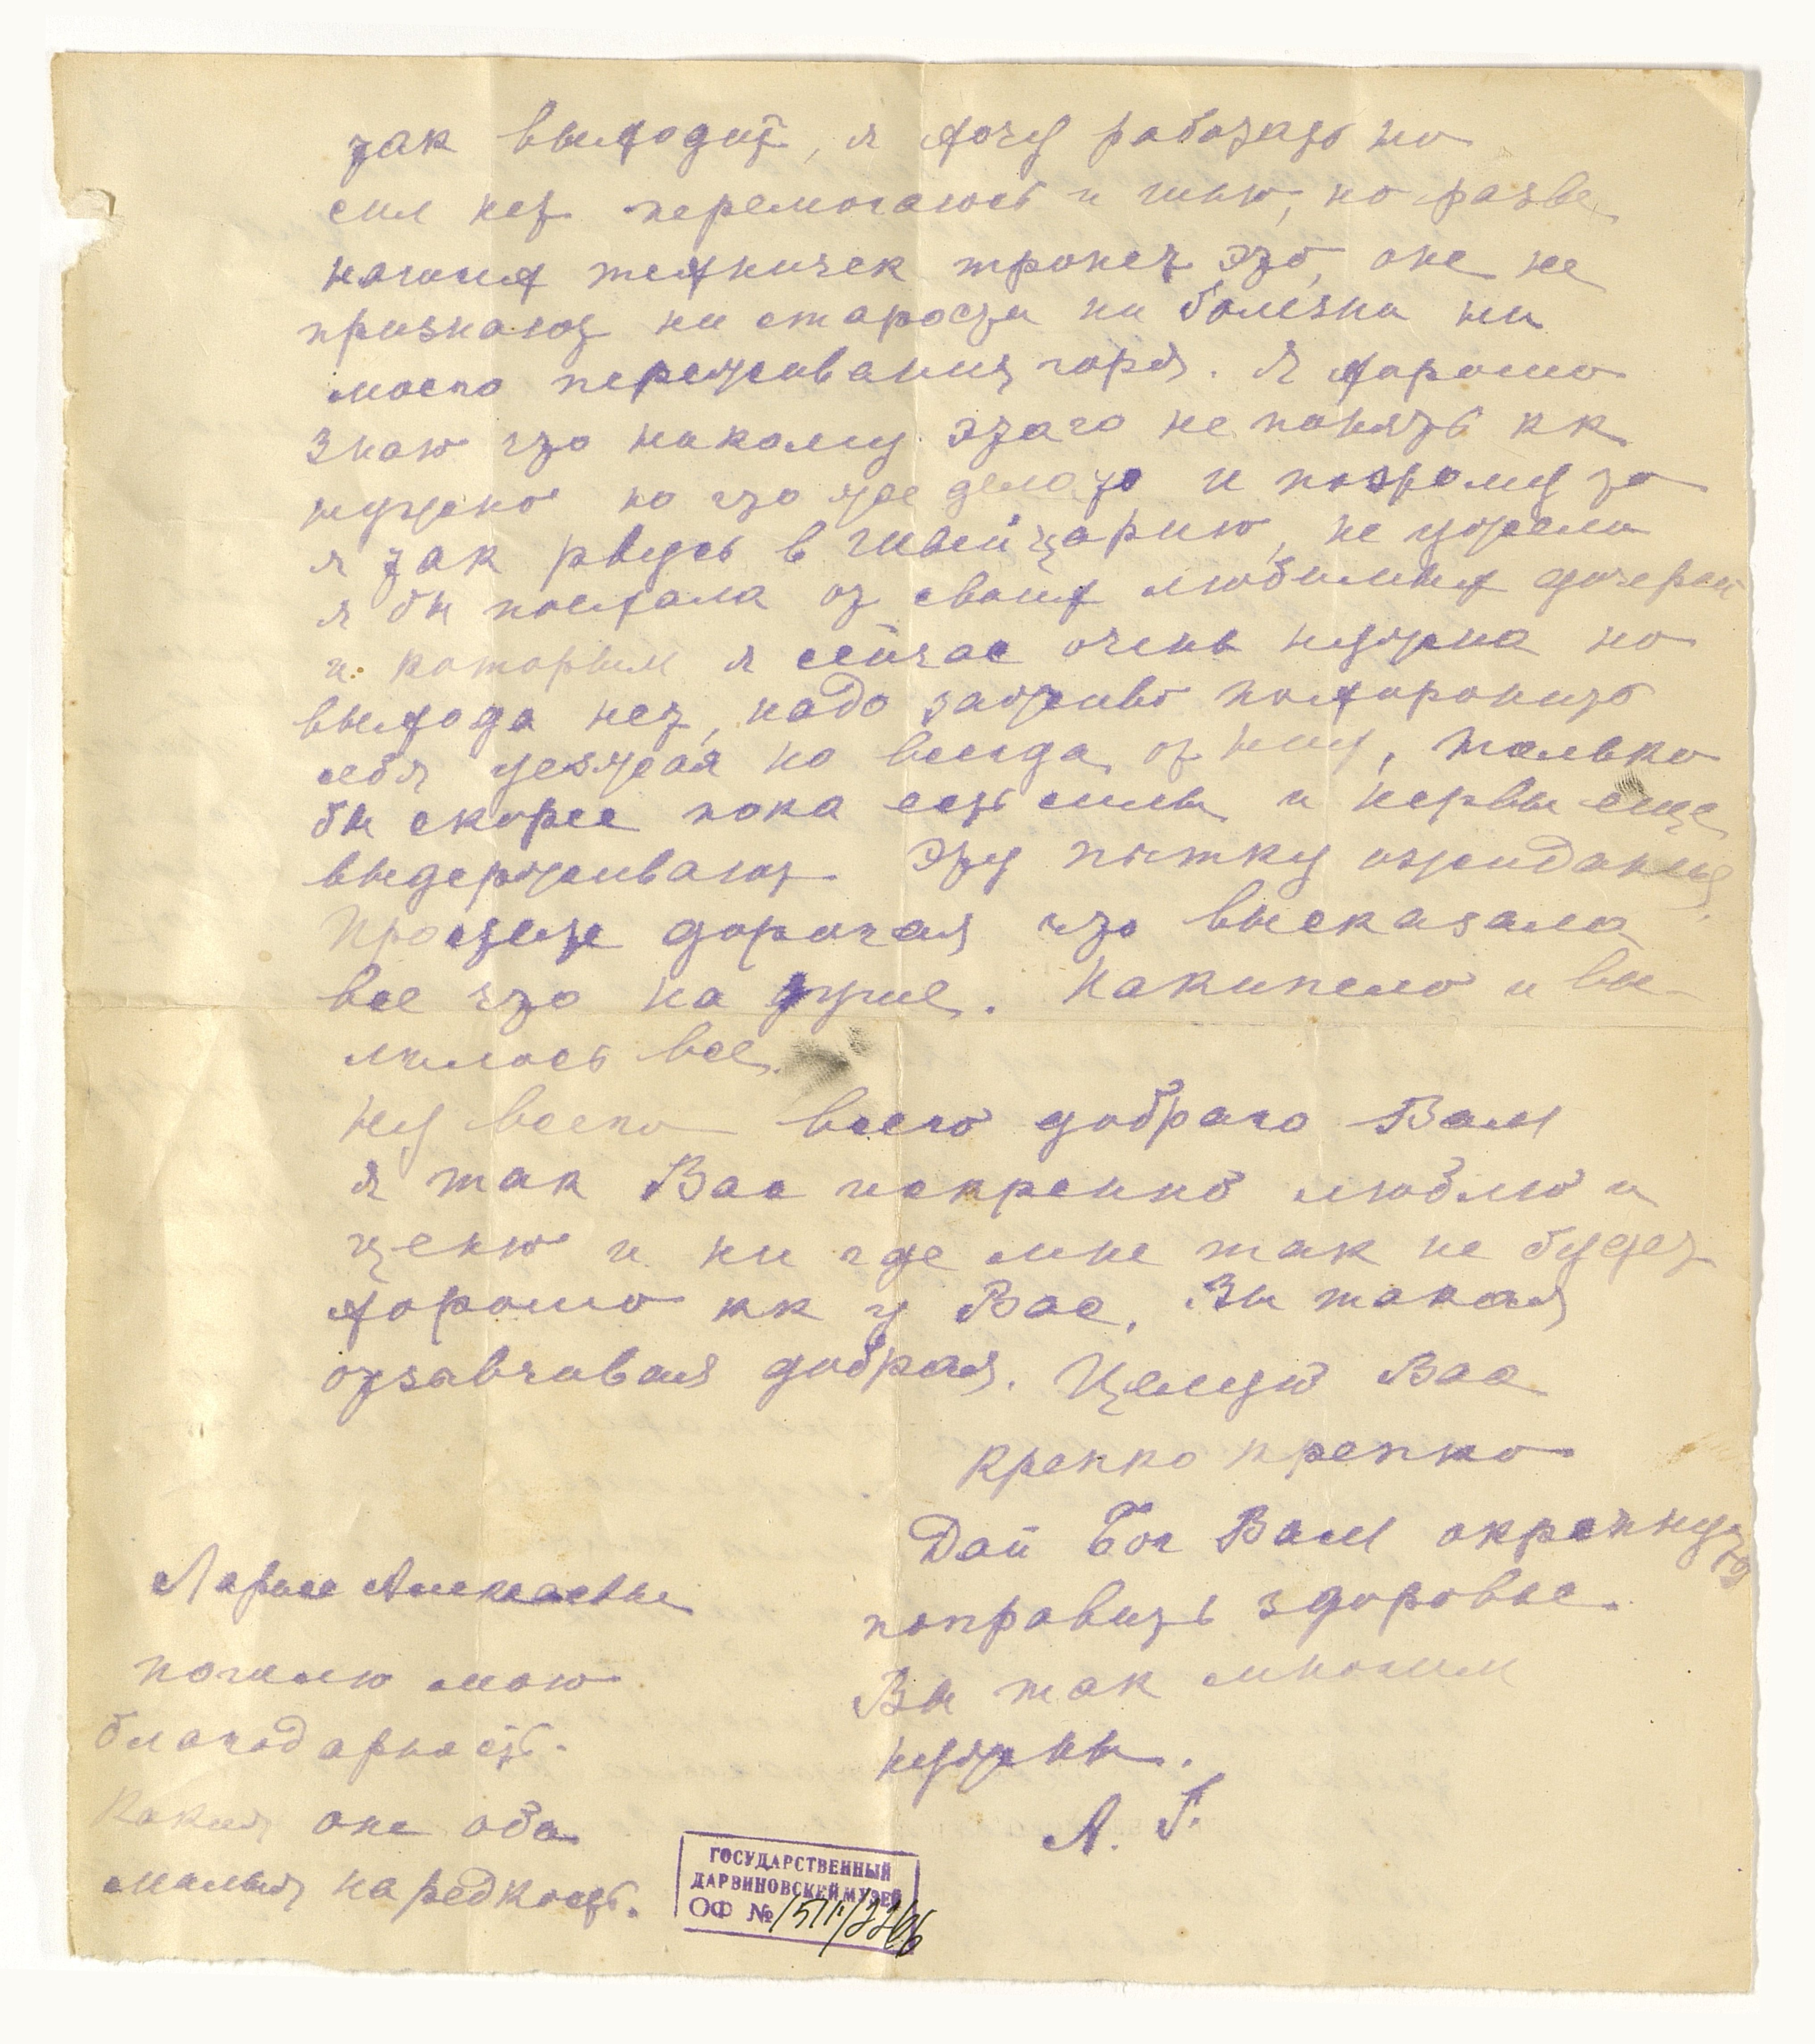 так выходит, я хочу работать но
сил нет перемогаюсь и шью, но разве
наших техничек тронет это, оне не
признают ни старости ни болезни ни
моего переживания горя. Я хорошо
знаю что никому этаго не понять кк
нужно но что же делать и поэтому то
я так рвусь в Швейцарию, не ужели
я бы поехала от своих любимых дочерей
и которым я сейчас очень нужна но
выхода нет, надо заживо похоронить
себя уезжая на всегда от них, только
бы скорее пока есть силы и нервы еще
выдерживают эту пытку ожидания
Простите дорогая что высказала
все что на душе. Накипело и вы-
лилось все.
Ну всего всего добраго Вам
я так Вас искренно люблю и
ценю и ни где мне так не будет
хорошо кк у Вас, Вы такая
отзывчивая добрая. Целую Вас
крепко крепко
Дай Бог Вам окрепнуть
поправить здоровье.
Вы так многим
нужны.
А. Г.
Ларисе Алексеевне
пошлю мою
благодарность.
Какия оне оба
милыя на редкость.
ГОСУДАРСТВЕННЫЙ
ДАРВИНОВСКЕЙ МУЗЕЙ
ОФ №